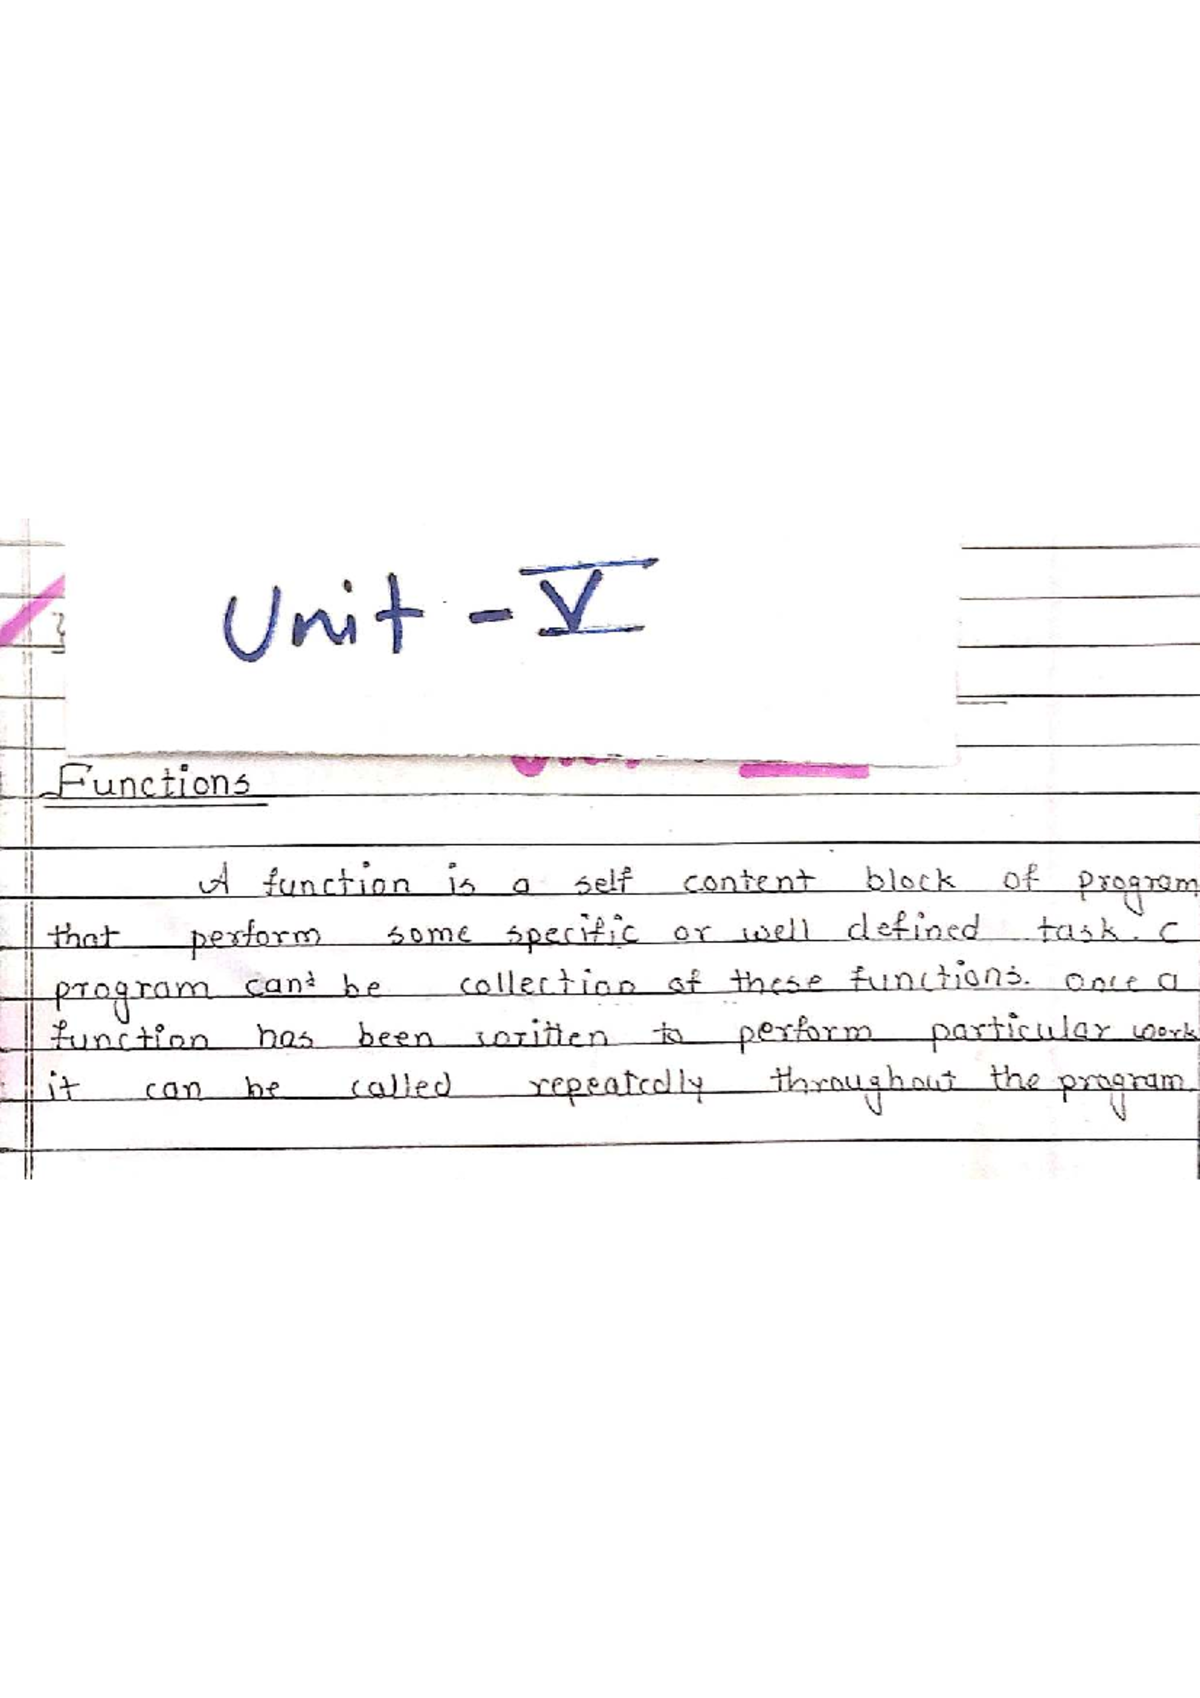 Unit - V
Functions
A function is a self content block of program
that perform some specific or well defined task. C
program can be collection of these functions. Once a
function has been written to perform particular work
it can be called repeatedly throughout the program.